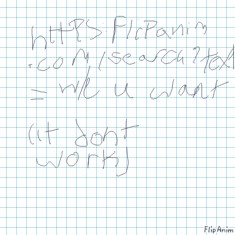 httPS FlipAnim
.com/search?text
= w/e u want
(it dont
work)
FlipAnim